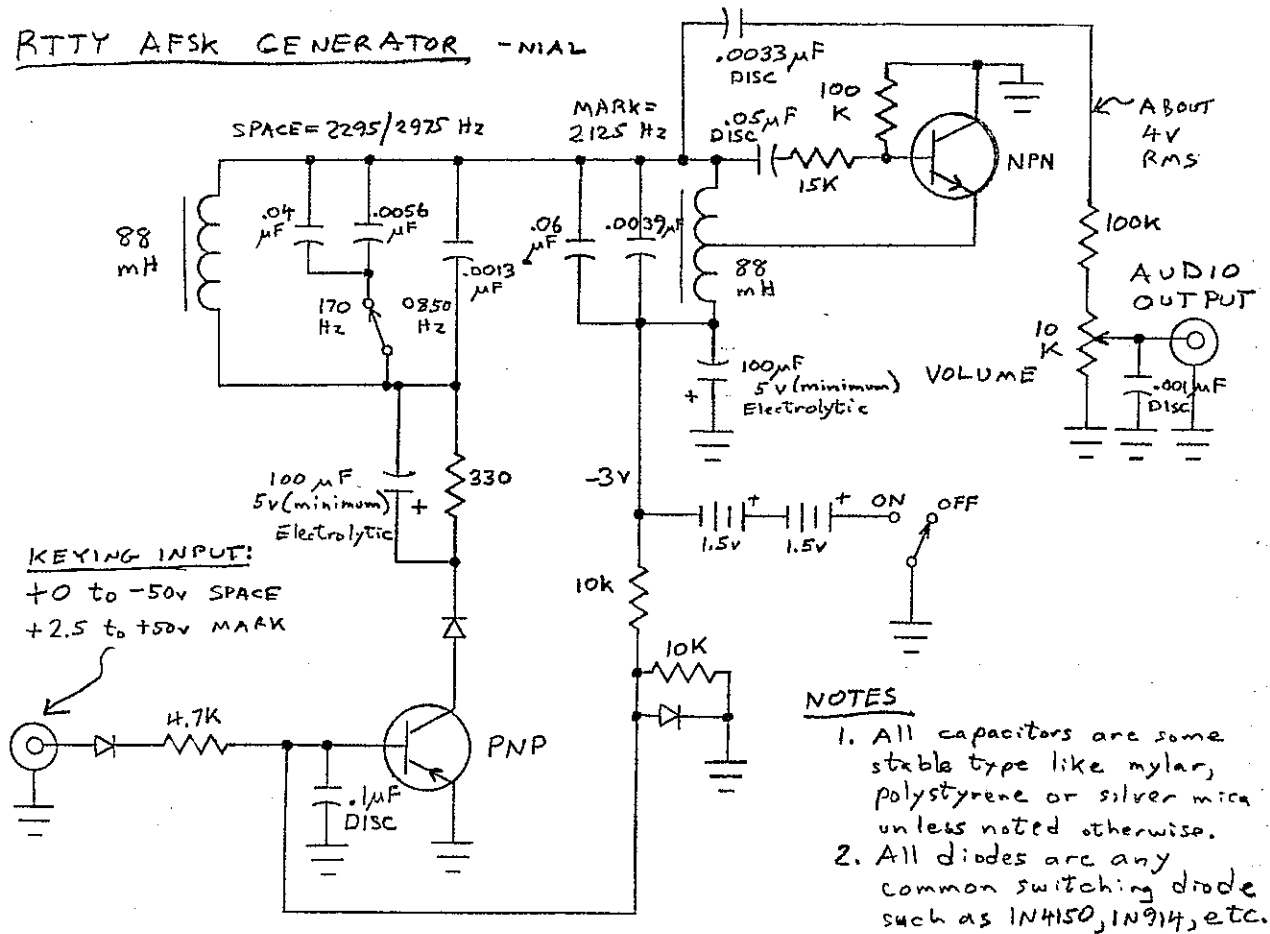 RTTY AFSK GENERATOR -N1AL
.0033µF
DISC
SPACE=2295/2975 Hz
MARK=
2125 Hz
.05µF
DISC
100
K
ABOUT
4V
RMS
15K
NPN
88
mH
.04
µF
.0056
µF
.0013
µF
.06
µF
.0039µF
88
mH
100K
170
Hz
0850
Hz
AUDIO
OUTPUT
10
K
VOLUME
.001µF
DISC
100µF
5v(minimum)
Electrolytic
+
100µF
5v(minimum)
Electrolytic
+
330
-3v
+
+
ON
OFF
1.5v
1.5v
KEYING INPUT:
+0 to -50v SPACE
+2.5 to +50v MARK
10k
10K
4.7K
PNP
.1µF
DISC
NOTES
1. All capacitors are some
stable type like mylar,
polystyrene or silver mica
unless noted otherwise.
2. All diodes are any
common switching diode
such as 1N4150, 1N914, etc.